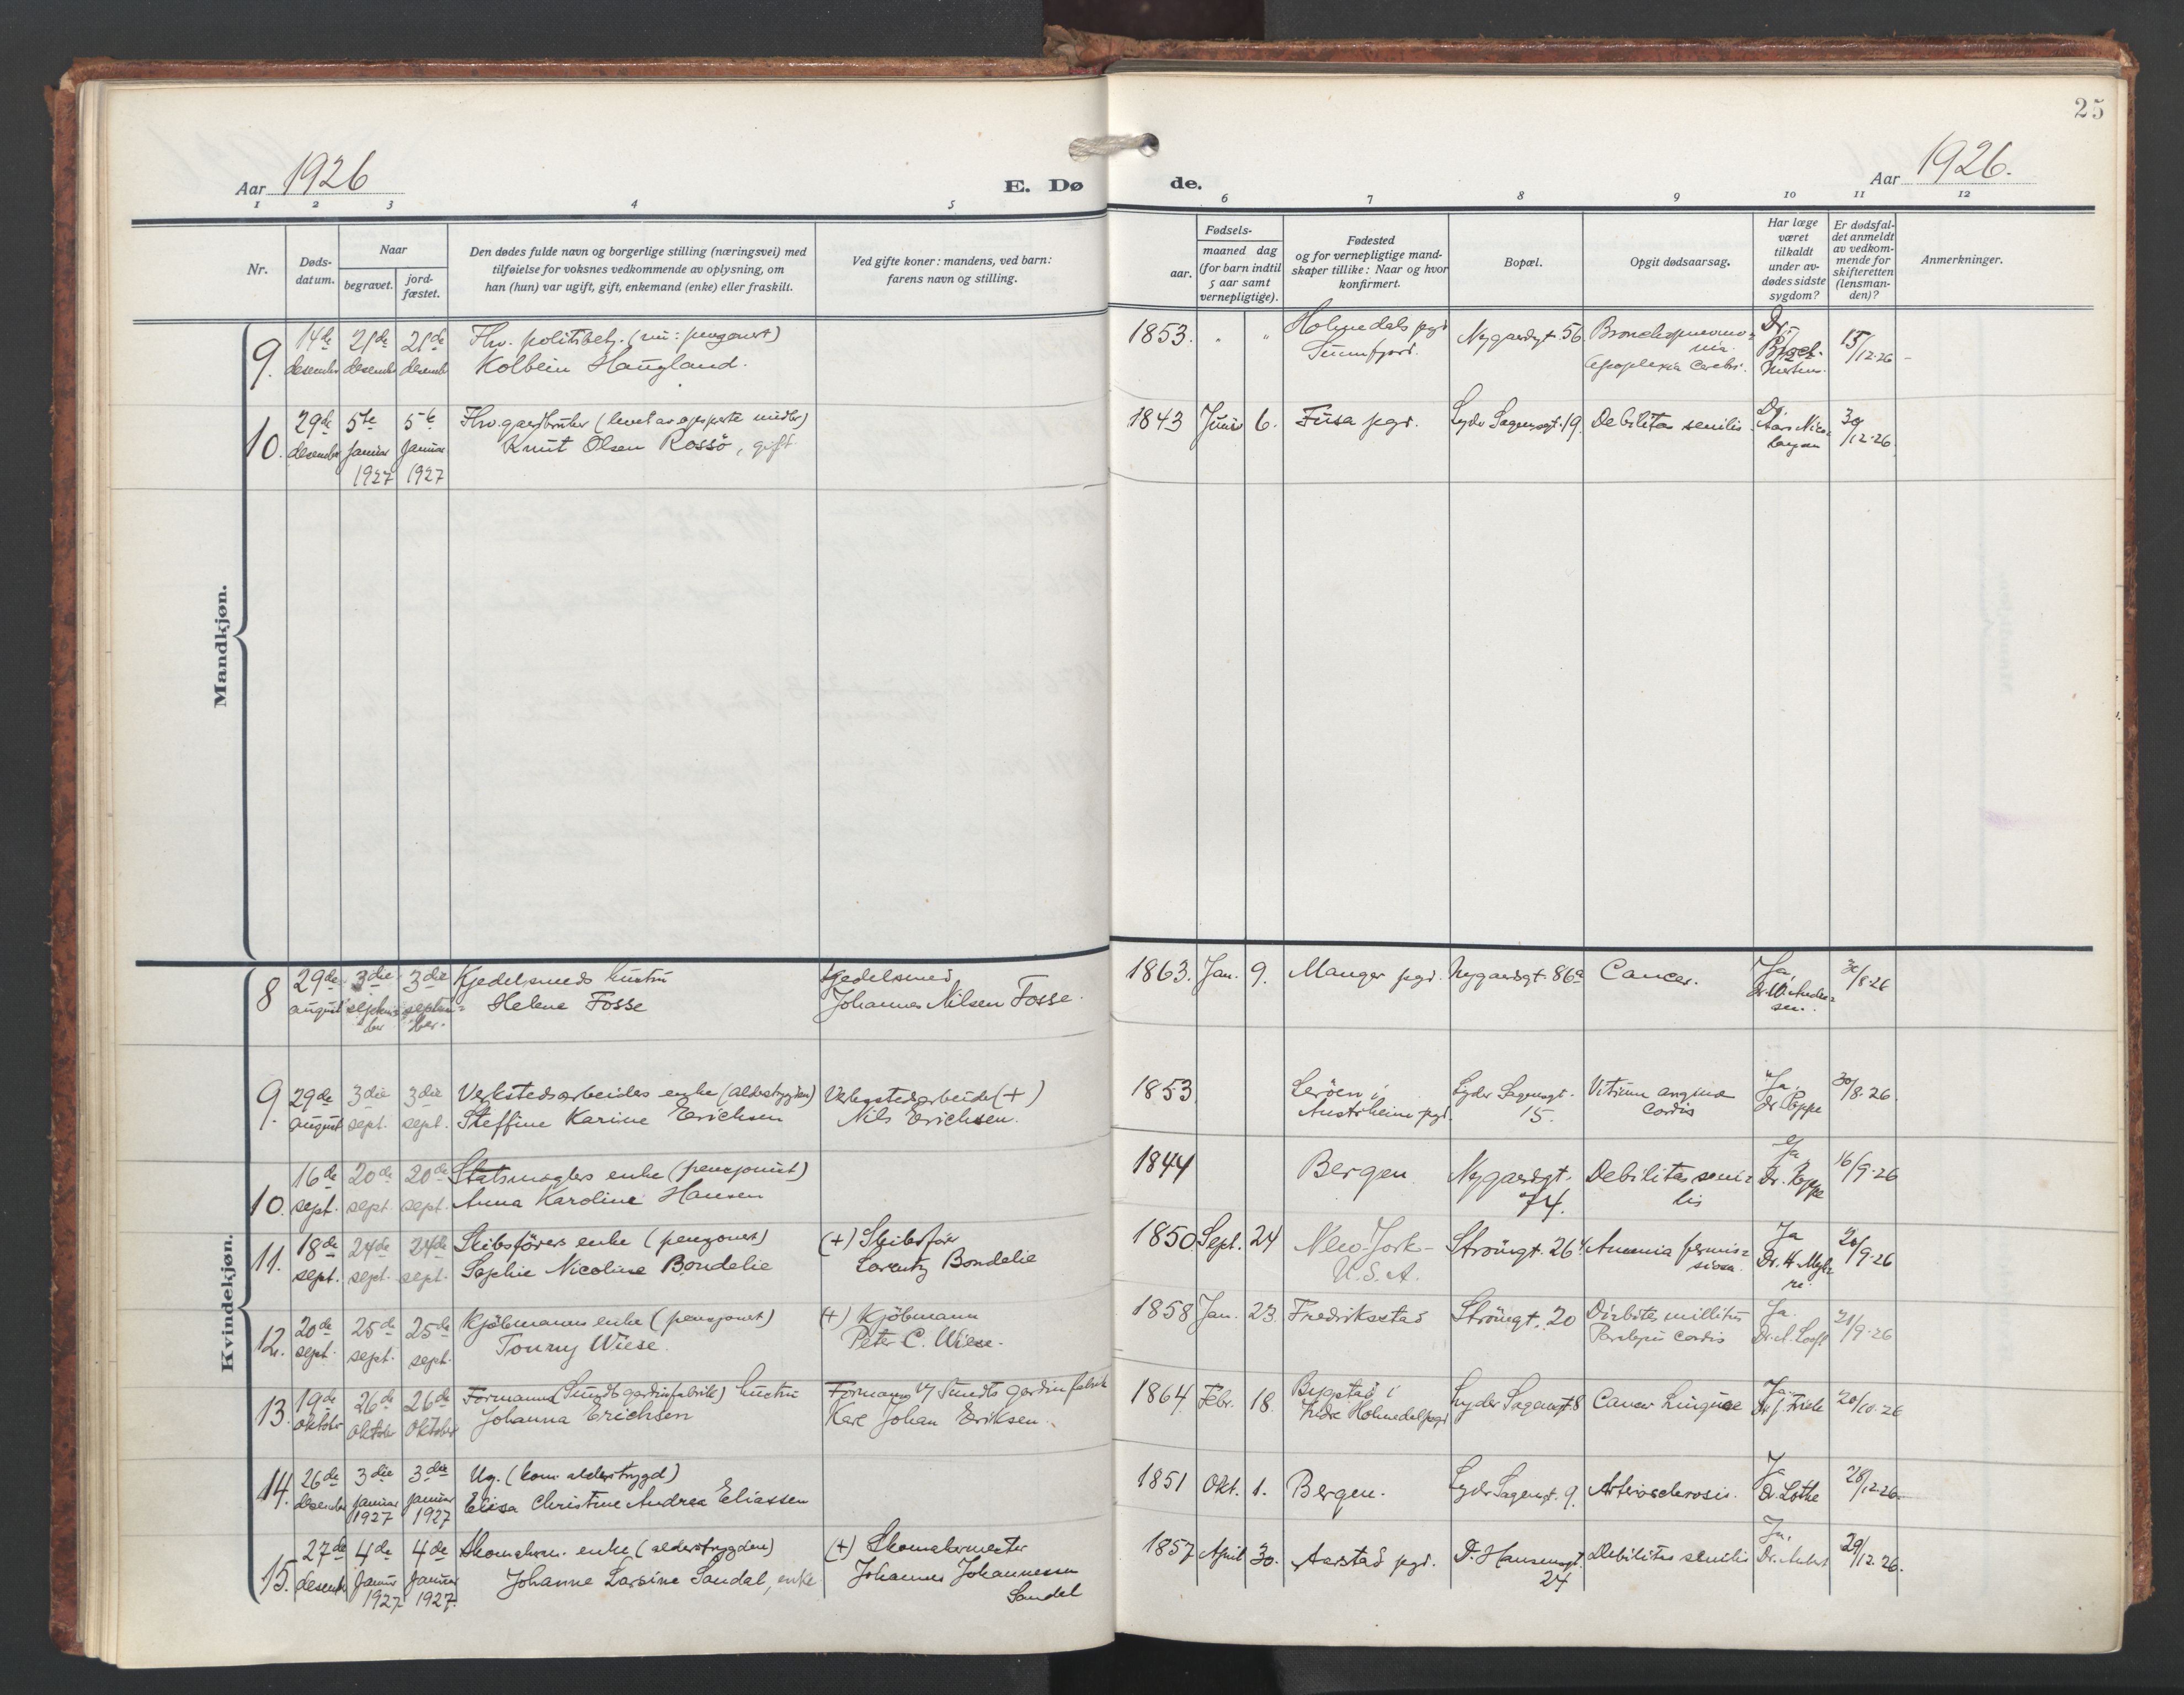 25
Aar 1926
E. Dø
de.
Aar 1926.
1 2 3 4 5
6 7 8 9 10 11 12
Nr.
Døds-
datum.
Naar
begravet.
jord-
fæstet.
Den dødes fulde navn og borgerlige stilling (næringsvei) med
tilføielse for voksnes vedkommende av oplysning, om
han (hun) var ugift, gift, enkemand (enke) eller fraskilt.
Ved gifte koner: mandens, ved barn:
farens navn og stilling.
Fødsels-
aar.
maaned dag
(for barn indtil
5 aar samt
vernepligtige).
Fødested
og for vernepligtige mand-
skaper tillike: Naar og hvor
konfirmert.
Bopæl.
Opgit dødsaarsag.
Har læge
været
tilkaldt
under av-
dødes sidste
sygdom?
Er dødsfal-
det anmeldt
av vedkom-
mende for
skifteretten
(lensman-
den)?
Anmerkninger.
Mandkjøn.
9. 14de desember 21de desember 21de desember
Kolbein Haugland.
1853. " " Holmedals pgd Sunnfjord. Nygaardsgt. 56 Bronchopneumonia Apoplexia cerebri. Dr. 15/12-26
10. 29de desember 5te januar 1927 5te januar 1927
Knut Olsen Rossö, gift
1843 Juni 6. Fusa pgd. Lyder Sagensgt. 19. Debilitas senilis Dr. 30/12-26.
Kvindekjøn.
8 29de august 3die september 3die september
Kjedelsmeds hustru
Helene Fosse
Kjedelsmed
Johannes Nilsen Fosse.
1863. Jan. 9. Manger pgd. Nygaardsgt. 86a Cancer. Ja, 30/8-26
9. 29de august 3die sept. 3die sept.
Verkstedsarbeiders enke (alderstrygden)
Steffine Karine Erichsen
Verkstedsarbeider (+)
Nils Erichsen.
1853. Leröen i Austrheim pgd. Lyder Sagensgt. 15. Vitium angina cordis Ja, 30/8-26.
10. 16de sept. 20de sept. 20de sept.
enke (pensjonist)
Anna Karoline Hansen
1844 Bergen Nygaardsgt. 74. Debilitas senilis Ja, 16/9-26
11. 18de sept. 24de sept. 24de sept.
Skibsförers enke (pensjonert)
Sophie Nicoline Bondelie
(+) Skibsförer
Lorentz Bondelie
1850 Sept. 24 New-York - U.S.A. Strömgt. 26 Anemia perniciosa. Ja 20/9-26
12. 20de sept. 25de sept. 25de sept.
Kjöbmanns enke (pensjonert)
Tonny Wiese.
(+) Kjöbmann
Peter C. Wiese.
1858 Jan. 23. Fredrikstad Strömgt. 20 Diabites millitus cordis Ja. 21/9-26
13. 19de oktober 26de oktober 26de oktober
Formanns (Sundts gardinfabrik) hustru
Johanna Erichsen
Formann v/ Sundts gardinfabrik
Karl Johan Eriksen.
1864 Febr. 18. Bygstad i Indre Holmedal pgd Lyder Sagensgt. 8 Cancer Linguae Ja, 20/10-26
14. 26de desember 3die januar 1927 3die januar 1927
Ug. (kom. alderstrygd)
Elisa Christine Andrea Eliassen
1851 Okt. 1. Bergen. Lyder Sagensgt. 9. Arteriosclerosis. Ja Dr. Lothe 28/12-26.
15. 27de desember 4de januar 1927 4de januar 1927.
Skomakerm. enke (alderstrygden)
Johanne Larsine Sandal, enke
(+) Skomakermester
Johannes Johannessen
Sandal
1857 April 30. Aarstad pgd. D. Hansensgt. 24 Debilitas senilis Ja, 29/12-26.